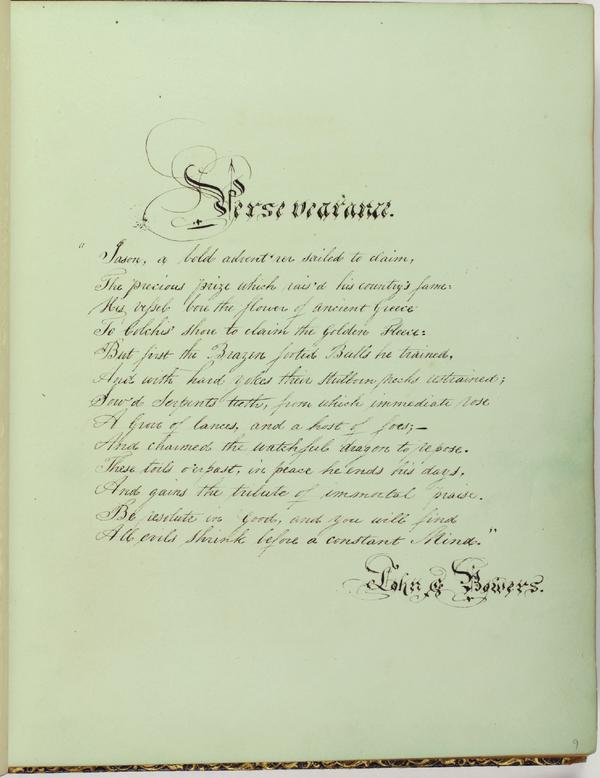 Persevearance.
"Jason, a bold advent'rer sailed to claim,
The precious prize which rais'd his country's fame:
His vessel bore the flower of ancient Greece
To Colchis' shore to claim the Golden Fleece:
But first the Brazen footed Bulls he trained,
And with hard yokes their stubborn necks restrained;
Sow'd Serpents teeth, from which immediate rose
A Grove of lances, and a host of foes;—
And charmed the watchful dragon to repose.
These toils o'erpast, in peace he ends his days,
And gains the tribute of immortal praise.
Be resolute in Good, and you will find
All evils shrink before a constant Mind."
John C Bowers.
9